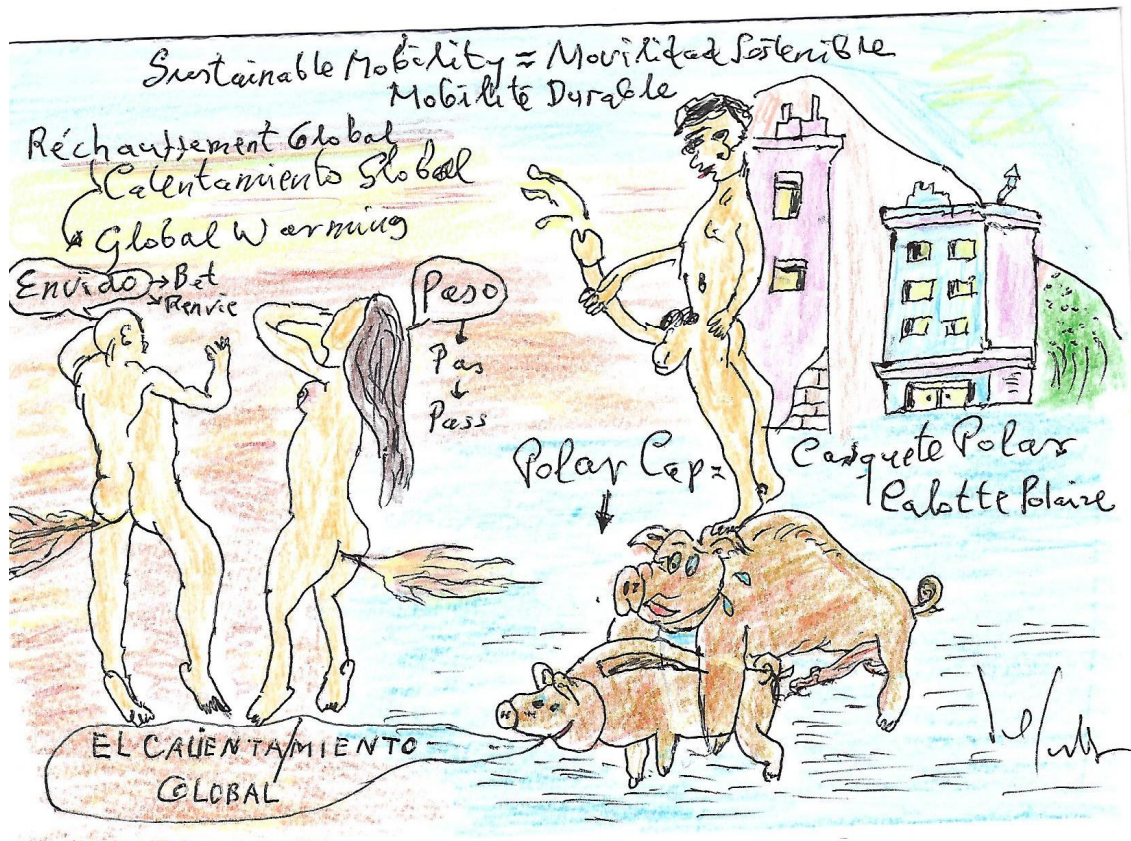 Sustainable Mobility = Movilidad Sostenible
Mobilité Durable
Réchauffement Global
Calentamiento Global
Global Warming
Envido → Bet
Renvie
Paso
Pas
Pass
Polar Cap =
Casquete Polar
Calotte Polaire
EL CALIENTA/MIENTO
GLOBAL